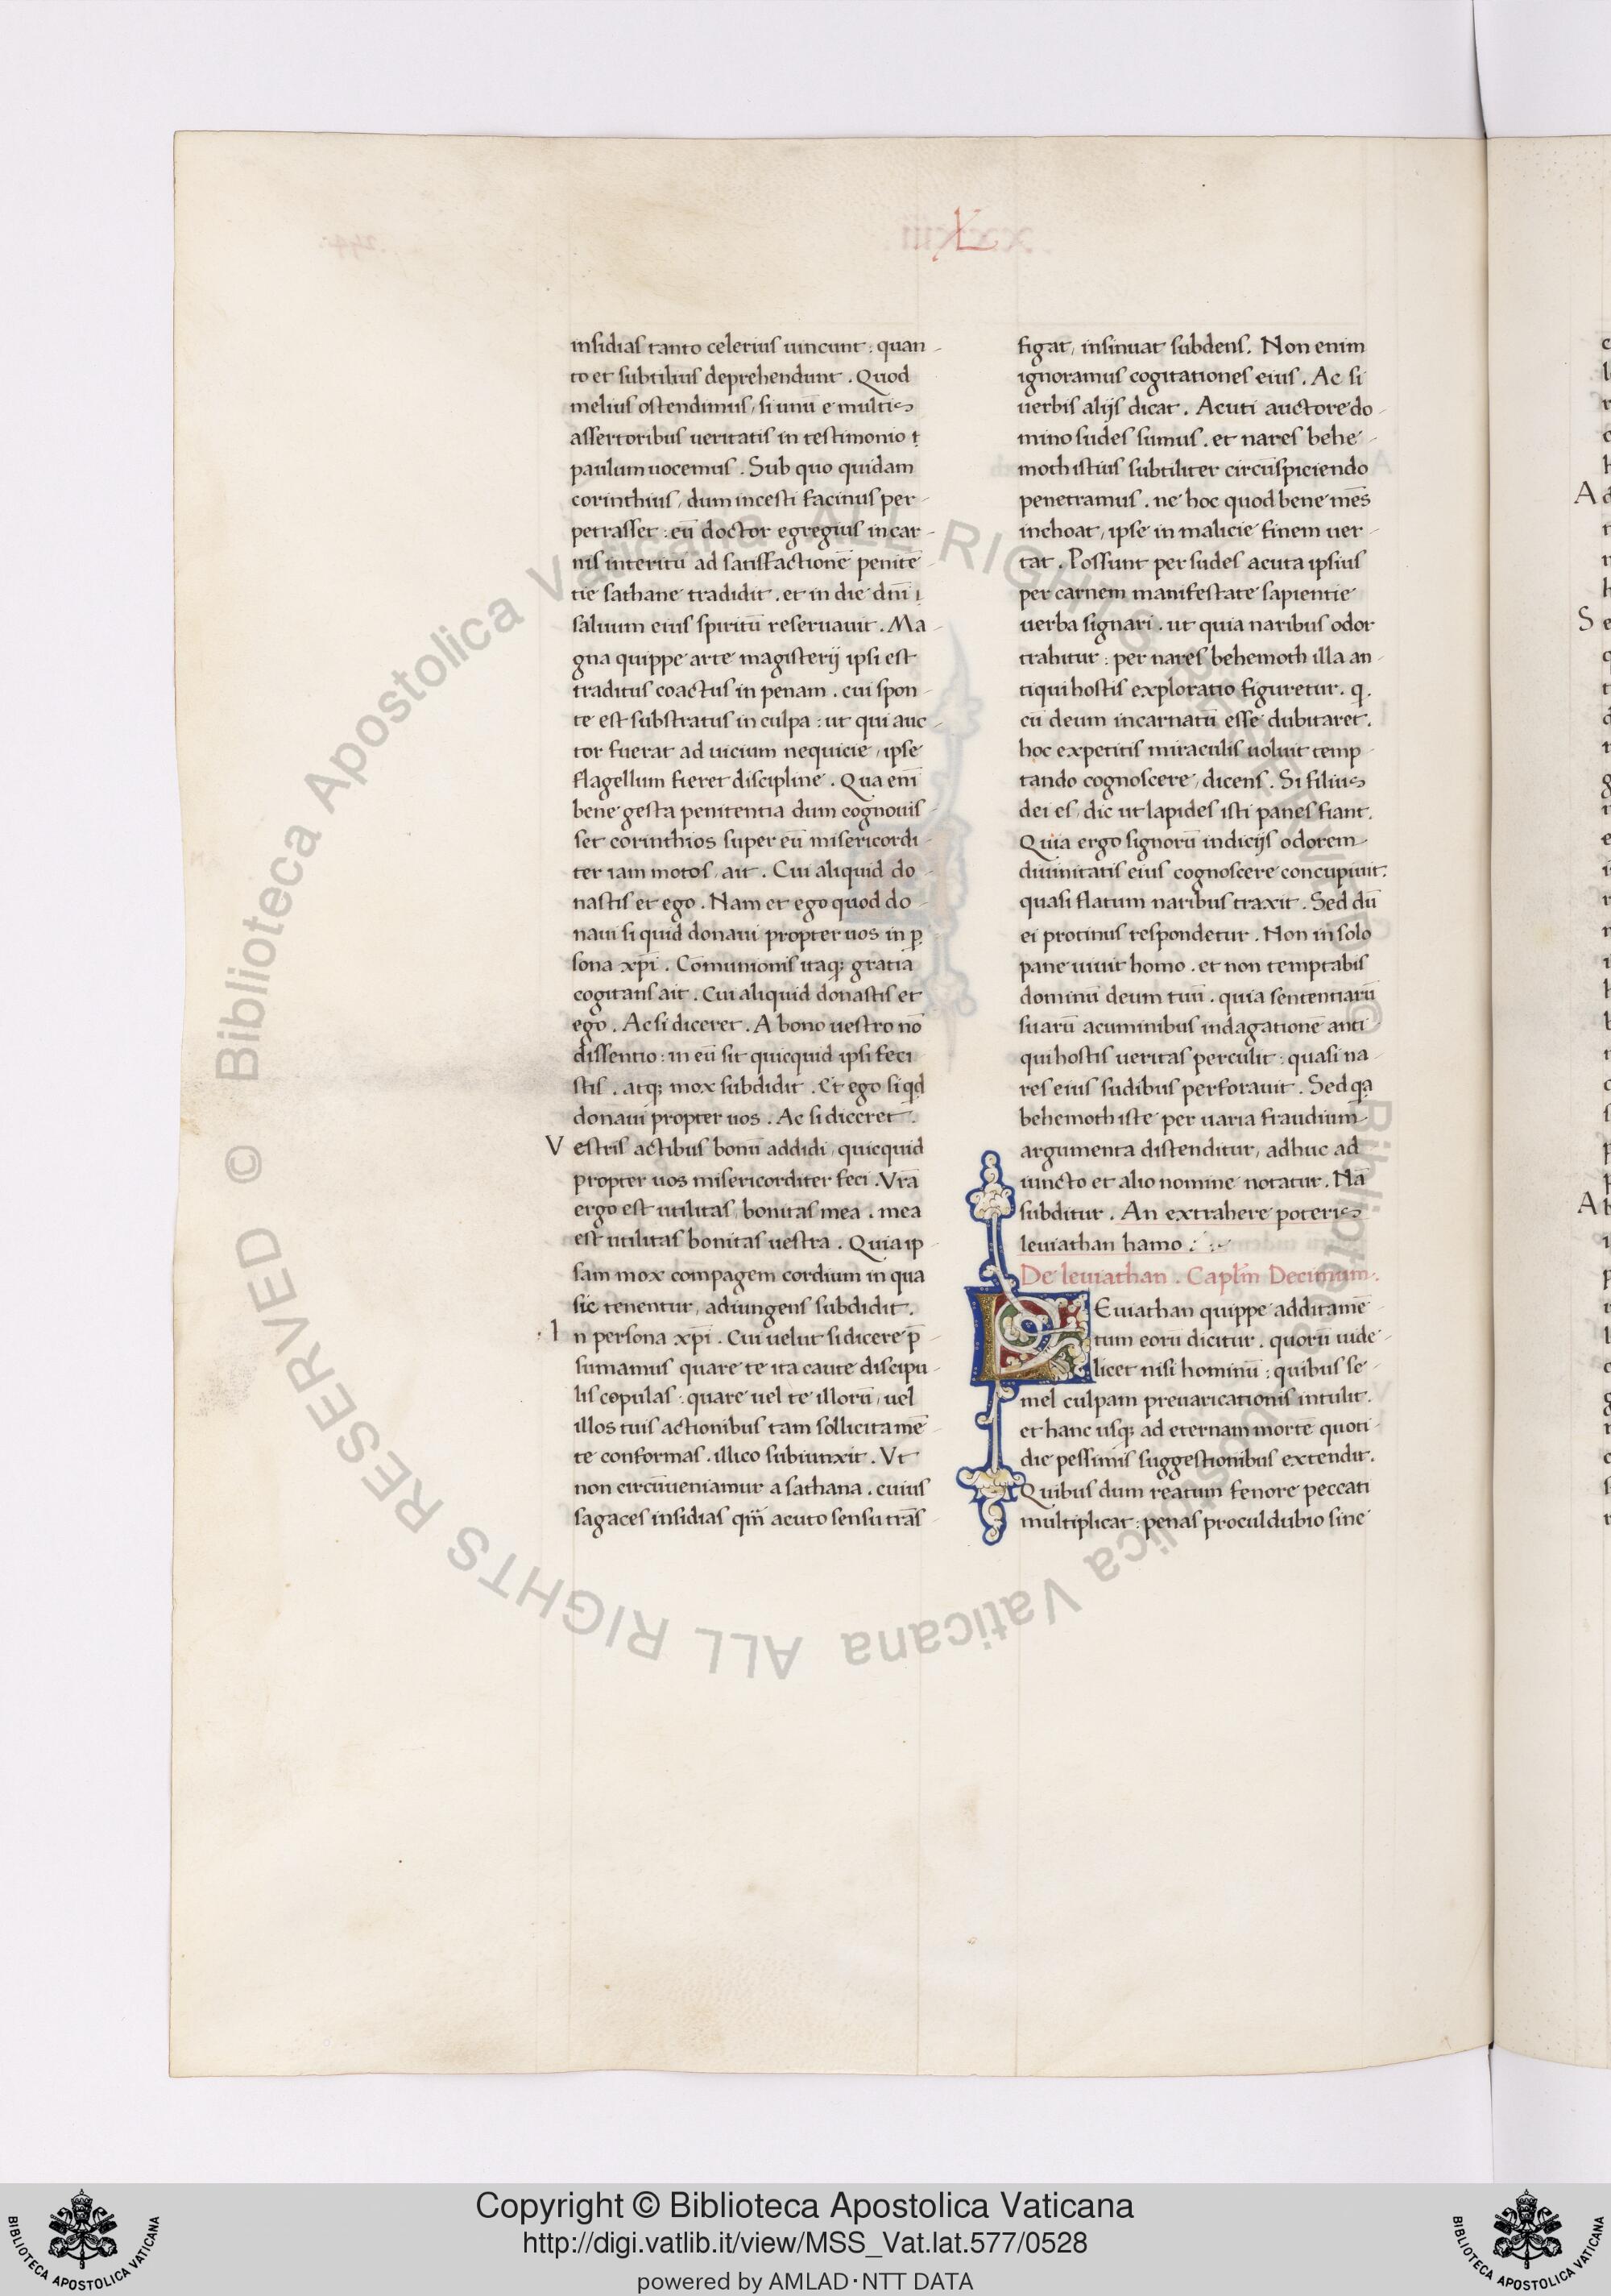 L
insidias tanto celerius uincunt: quan-
to et subtilius deprehendunt. Quod
melius ostendimus, si unū e multis
assertoribus ueritatis in testimonio
paulum uocemus. Sub quo quidam
corinthius, dum incesti facinus per-
petrasset: eū doctor egregius in car-
nis interitū ad satisfactionē penitē-
tie sathane tradidit. et in die dn̄i i
saluum eius spiritū reseruauit. Ma-
gna quippe arte magisterij ipsi est
traditus coactus in penam. cui spon-
te est substratus in culpa: ut qui auc-
tor fuerat ad uicium nequicie, ipse
flagellum fieret discipline. Qua eni̅
bene gesta penitentia dum cognouis-
set corinthios super eū misericordi-
ter iam motos, ait. Cui aliquid do-
nastis et ego. Nam et ego quod do-
naui si quid donaui propter uos in p̱
sona xp̄i. Cōmunionis itaq; gratia
cogitans ait. Cui aliquid donastis et
ego. Ac si diceret. A bono uestro nō
dissentio: in eū sit quicquid ipsi feci-
stis. atq; mox subdidit. Et ego si qd
donaui propter uos. Ac si diceret.
Vestris actibus bonū addidi, quicquid
propter uos misericorditer feci. Vrā
ergo est utilitas, bonitas mea. mea
est utilitas bonitas uestra. Quia ip-
sam mox compagem cordium in qua
sic tenentur, adiungens subdidit.
In persona xp̄i. Cui uelut si dicere p̄-
sumamus quare te ita caute discipu-
lis copulas: quare uel te illorū, uel
illos tuis actionibus tam sollicitamē-
te conformas. illico subiunxit. Vt
non circūueniamur a sathana. cuius
sagaces insidias qm̄ acuto sensu trās-
figat, insinuat subdens. Non enim
ignoramus cogitationes eius. Ac si
uerbis alijs dicat. Acuti auctore do-
mino sudes sumus. et nares behe-
moth istius subtiliter circūspiciendo
penetramus. ne hoc quod bene mēs
inchoat, ipse in malicie finem uer-
tat. Possunt per sudes acuta ipsius
per carnem manifestate sapientie
uerba signari. ut quia naribus odor
trahitur: per nares behemoth illa an-
tiqui hostis exploratio figuretur. q.
cū deum incarnatū esse dubitaret.
hoc expetitis miraculis uoluit temp-
tando cognoscere, dicens. Si filius
dei es, dic ut lapides isti panes fiant.
Quia ergo signorū indicijs odorem
diuinitatis eius cognoscere concupiuit:
quasi flatum naribus traxit. Sed dū
ei protinus respondetur. Non in solo
pane uiuit homo. et non temptabis
dominū deum tuū. quia sententiarū
suarū acuminibus indagationē anti-
qui hostis ueritas perculit: quasi na-
res eius sudibus perforauit. Sed qa
behemoth iste per uaria fraudium
argumenta distenditur, adhuc ad-
iuncto et alio nomine notatur. Nā
subditur. An extrahere poteris
leuiathan hamo.
De leuiathan. Capl̄m Decimum.
LEuiathan quippe additamē-
tum eorū dicitur. quorū uide-
licet nisi hominū: quibus se-
mel culpam preuaricationis intulit.
et hanc usq; ad eternam mortē quoti-
die pessimis suggestionibus extendit.
Quibus dum reatum fenore peccati
multiplicat: penas procul dubio sine
Copyright © Biblioteca Apostolica Vaticana
http://digi.vatlib.it/view/MSS_Vat.lat.577/0528
powered by AMLAD·NTT DATA
BIBLIOTECA APOSTOLICA VATICANA
BIBLIOTECA APOSTOLICA VATICANA
© Biblioteca Apostolica Vaticana ALL RIGHTS RESERVED
© Biblioteca Apostolica Vaticana ALL RIGHTS RESERVED